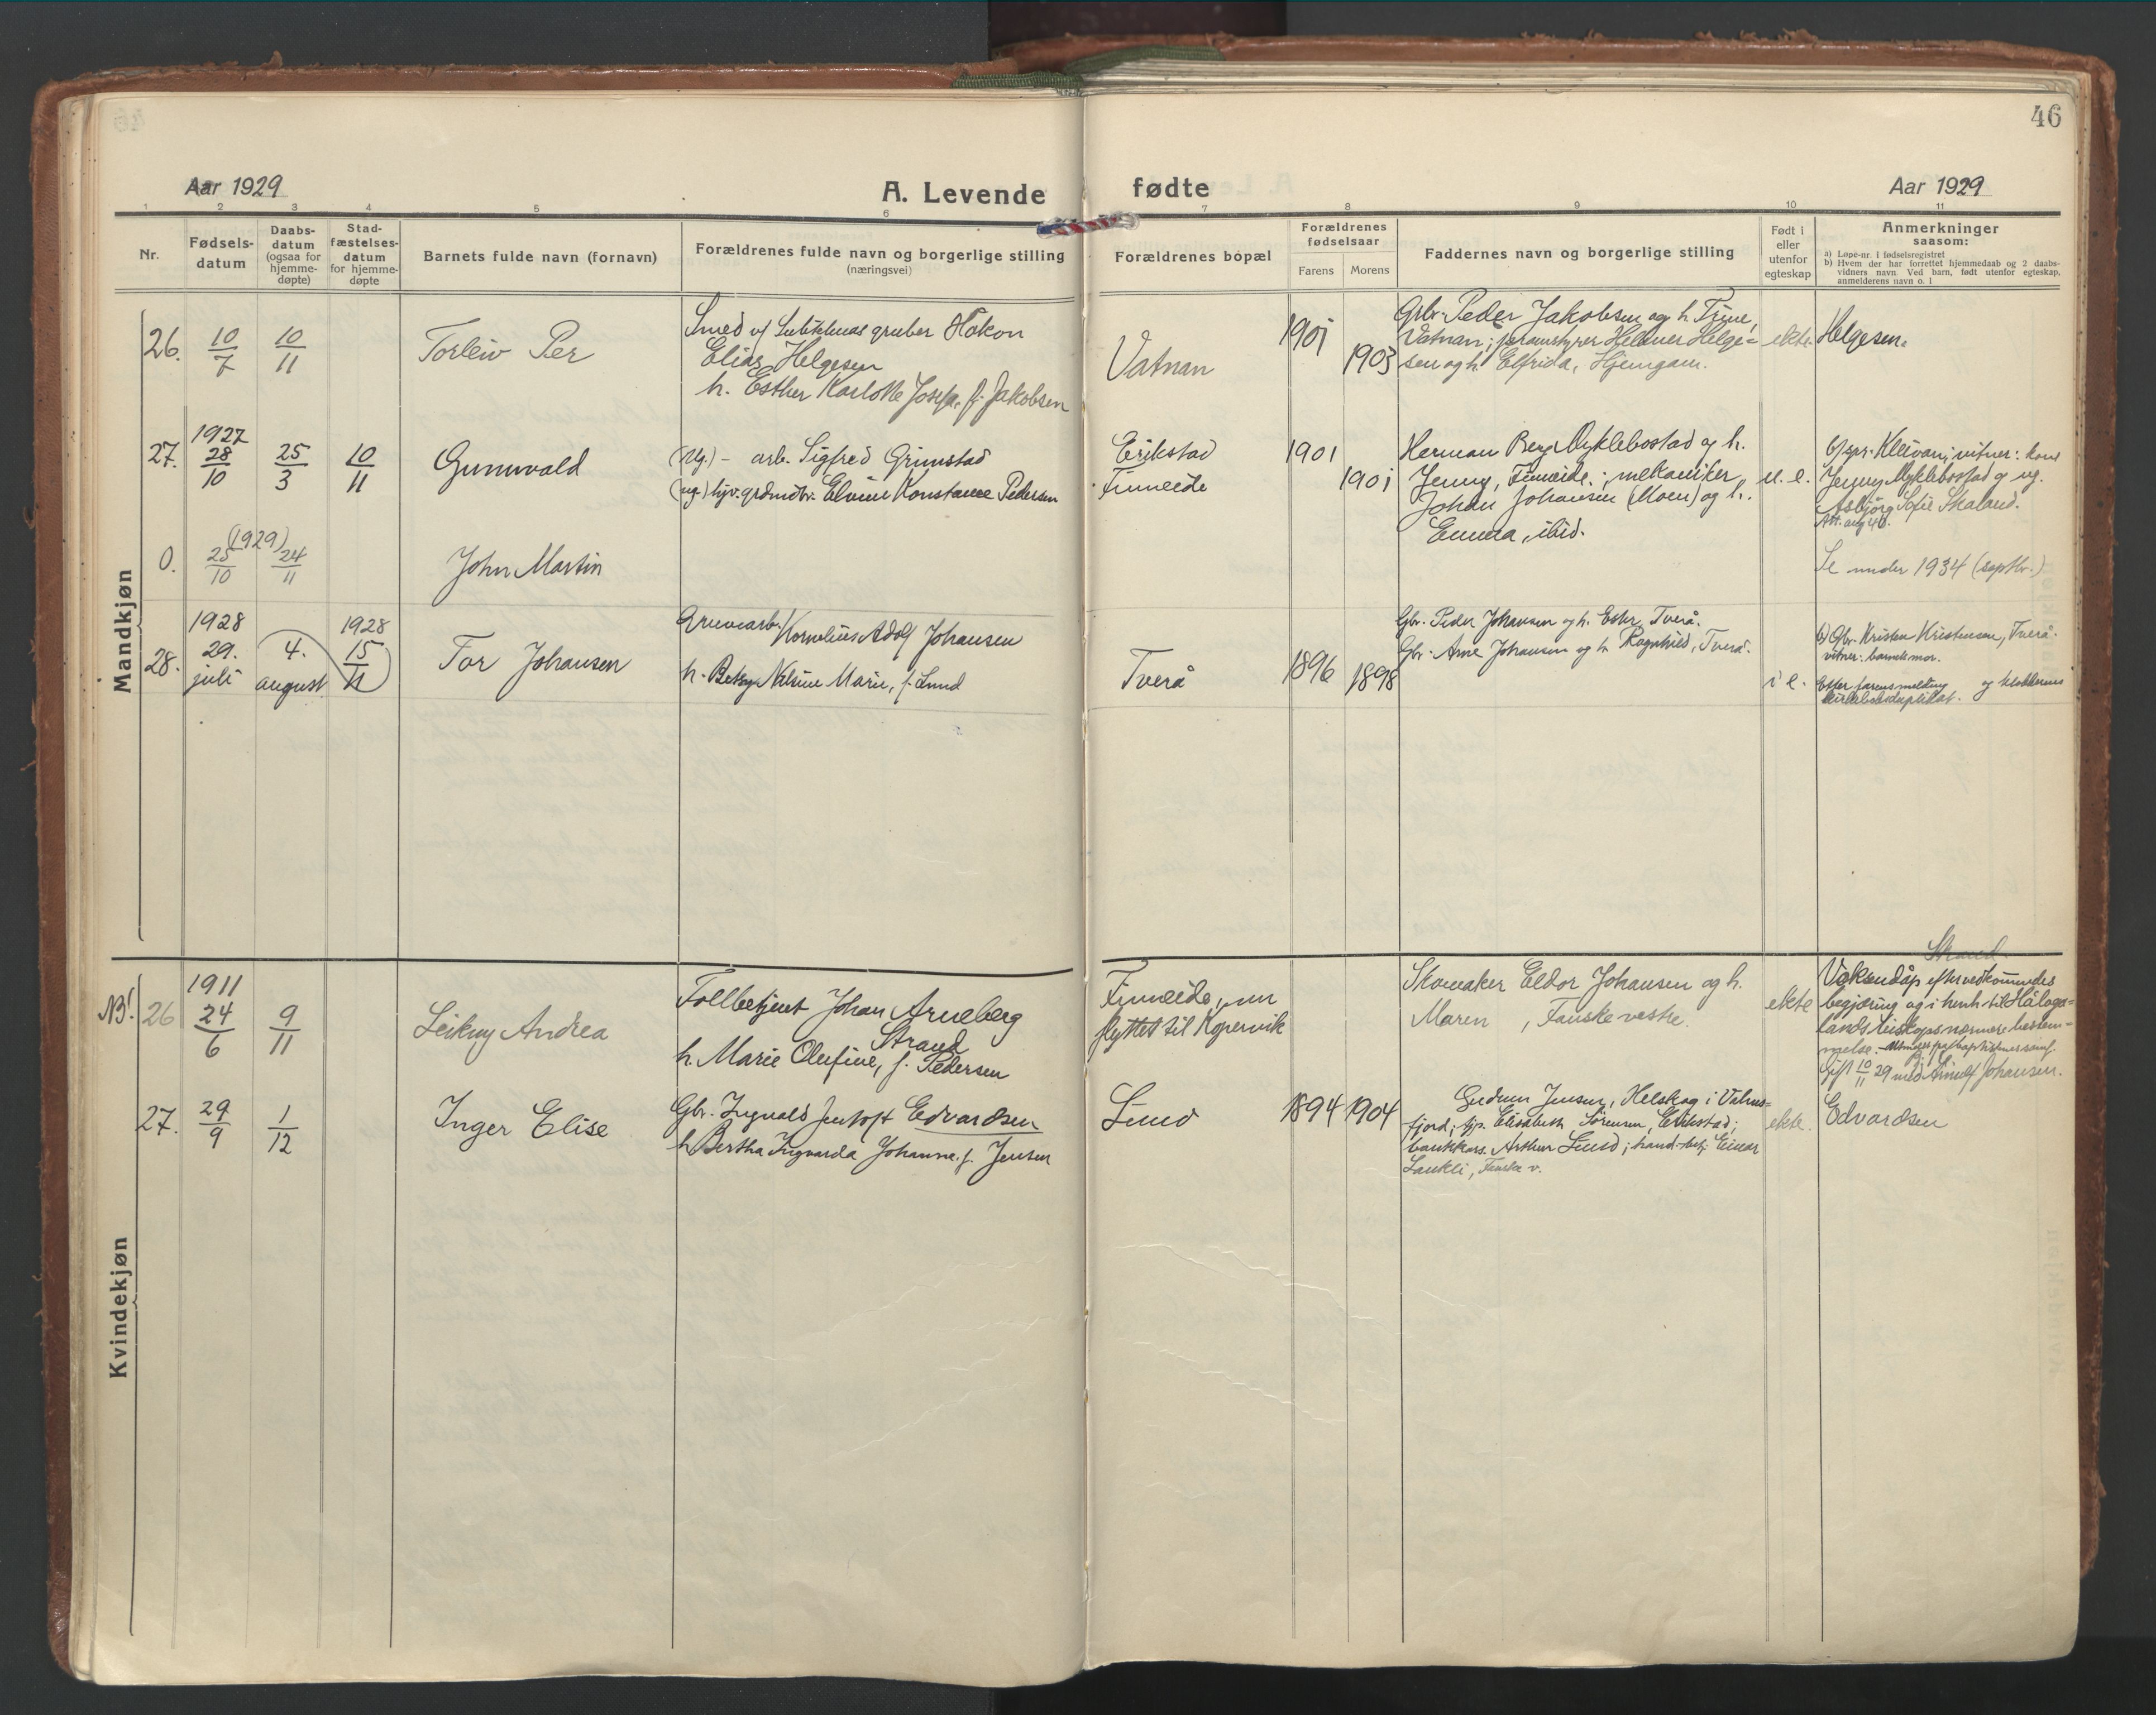 46
Aar 1929
A. Levende
fødte
Aar 1929
1 2 3 4 5 6 7 8 9 10 11
Nr.
Fødsels-
datum
Daabs-
datum
(ogsaa for
hjemme-
døpte)
Stad-
fæstelses-
datum
for hjemme-
døpte
Barnets fulde navn (fornavn)
Forældrenes fulde navn og borgerlige stilling
(næringsvei)
Forældrenes bopæl
Forældrenes
fødselsaar
Farens Morens
Faddernes navn og borgerlige stilling
Født i
eller
utenfor
egteskap
Anmerkninger
saasom:
a) Løpe-nr. i fødselsregistret
b) Hvem der har forrettet hjemmedaab og 2 daabs-
vidners navn. Ved barn, født utenfor egteskap,
anmelderens navn o. l
Mandkjøn
26. 10/7 10/11
Torleiv Per
Smed v/ Sulitelmas gruber Håkon
Elias Helgesen
h. Esther Karlotte Josefa, f. Jakobsen
Vatnan
1901
1903
Gbr. Peder Jakobsen og h. Trine,
Vatnan; Helmer Helge-
sen og h. Elfrida, Hjemgam.
ekte
Helgesen.
27. 1927
28/10 25/3 10/11
Gunnvald
(ug.) - arb. Sigfred Grimstad
(ug.) Elvine Konstance Pedersen
Erikstad
Finneide
1901
1901
Herman Berg Myklebostad og h.
Jenny, Finneide; mekaniker
Johan Johansen (Moen) og h.
Emma, ibid.
u. e.
b) spr. Kleivan; vitner: kone
Jenny Myklebostad og ug.
Asbjörg Sofie Skaland.
0. (1929)
25/10 24/11
John Martin
Se under 1934 (septbr.)
28. 1928
29.
juli
4.
august
1928
15/11
Tor Johansen
Gruvearb. Kornelius Adolf Johansen
h. Betsy Nilsine Marie, f. Lund
Tverå
1896 1898
Gbr. Peder Johansen og h. Ester, Tverå.
Gbr. Arne Johansen og h. Ragnhild, Tverå.
i e.
b) Gbr. Kristen Kristensen, Tverå.
vitner: barnets mor.
Etter farens melding og klokkerens
kirkeboksduplikat.
Kvindekjøn
NB! 26 1911
24/6 9/11
Leikny Andrea
Tollbetjent Johan Arneberg
Strand
h. Marie Olufine, f. Pedersen
Finneide, nu
flyttet til Kopervik
Skomaker Eldor Johansen og h.
Maren, Fauske vestre.
ekte
Strand.
Voksendåp efter vedkommendes
begjæring og i henh. til Håloga-
lands biskops nærmere bestem-
melse.
gift 10/11 29 med Arnulf Johansen.
27. 29/9 1/12
Inger Elise
Gbr. Ingvald Jentoft Edvardsen
h. Bertha Ingvarda Johanne, f. Jensen
Lund
1894 1904
Gudrun Jensen, Helskog i Valnes-
fjord; Elisabeth Sörensen, Erikstad;
bankkass. Arthur Lund; hand.betj. Einar
Lankli, Fauske v.
ekte.
Edvardsen